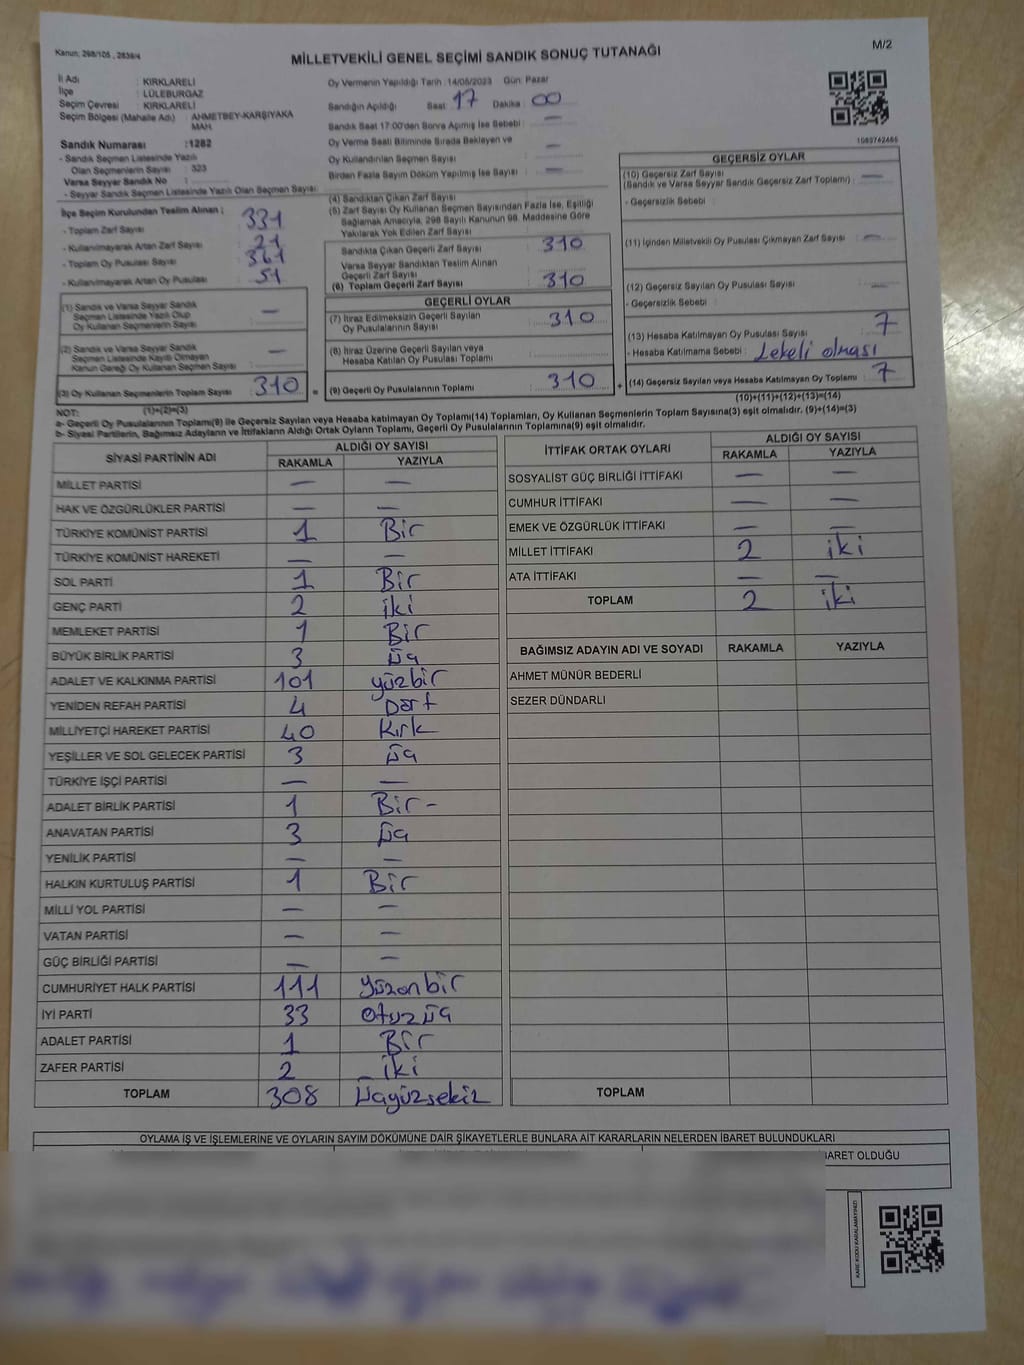 Kanun, 298/105 , 2839/4
M/2
MİLLETVEKİLİ GENEL SEÇİMİ SANDIK SONUÇ TUTANAĞI
İl Adı : KIRKLARELİ
İlçe : LÜLEBURGAZ
Seçim Çevresi : KIRKLARELİ
Seçim Bölgesi (Mahalle Adı) : AHMETBEY-KARŞIYAKA MAH.
Sandık Numarası :1282
- Sandık Seçmen Listesinde Yazılı
Olan Seçmenlerin Sayısı : 323
Varsa Seyyar Sandık No :
- Seyyar Sandık Seçmen Listesinde Yazılı Olan Seçmen Sayısı:
Oy Vermenin Yapıldığı Tarih :14/05/2023 Gün: Pazar
Sandığın Açıldığı Saat 17 Dakika : 00
Sandık Saat 17:00'den Sonra Açımış İse Sebebi : —
Oy Verme Saati Bitiminde Sırada Bekleyen ve
Oy Kullandırılan Seçmen Sayısı —
Birden Fazla Sayım Döküm Yapılmış İse Sayısı : —
1083742465
İlçe Seçim Kurulundan Teslim Alınan ;
- Toplam Zarf Sayısı 331
- Kullanılmayarak Artan Zarf Sayısı 21
- Toplam Oy Pusulası Sayısı 361
- Kullanılmayarak Artan Oy Pusulası 51
(1) Sandık ve Varsa Seyyar Sandık
Seçmen Listesinde Yazılı Olup
Oy Kullanan Seçmenlerin Sayısı —
(2) Sandık ve Varsa Seyyar Sandık
Seçmen Listesinde Kayıtlı Olmayan
Kanun Gereği Oy Kullanan Seçmen Sayısı —
(3) Oy Kullanan Seçmenlerin Toplam Sayısı 310 =
(4) Sandıktan Çıkan Zarf Sayısı
(5) Zarf Sayısı Oy Kullanan Seçmen Sayısından Fazla İse, Eşitliği
Sağlamak Amacıyla, 298 Sayılı Kanunun 98. Maddesine Göre
Yakılarak Yok Edilen Zarf Sayısı
Sandıkta Çıkan Geçerli Zarf Sayısı 310
Varsa Seyyar Sandıktan Teslim Alınan
Geçerli Zarf Sayısı :
(6) Toplam Geçerli Zarf Sayısı 310
GEÇERLİ OYLAR
(7) İtiraz Edilmeksizin Geçerli Sayılan
Oy Pusulalarının Sayısı 310
(8) İtiraz Üzerine Geçerli Sayılan veya
Hesaba Katılan Oy Pusulası Toplamı
(9) Geçerli Oy Pusulalarının Toplamı 310 +
GEÇERSİZ OYLAR
(10) Geçersiz Zarf Sayısı
(Sandık ve Varsa Seyyar Sandık Geçersiz Zarf Toplamı) : —
- Geçersizlik Sebebi :
(11) İçinden Milletvekili Oy Pusulası Çıkmayan Zarf Sayısı : —
(12) Geçersiz Sayılan Oy Pusulası Sayısı : —
- Geçersizlik Sebebi :
(13) Hesaba Katılmayan Oy Pusulası Sayısı 7
- Hesaba Katılmama Sebebi : Lekeli olması
(14) Geçersiz Sayılan veya Hesaba Katılmayan Oy Toplamı 7
(10)+(11)+(12)+(13)=(14)
NOT: (1)+(2)=(3)
a- Geçerli Oy Pusulasının Toplamı(9) ile Geçersiz Sayılan veya Hesaba katılmayan Oy Toplamı(14) Toplamları, Oy Kullanan Seçmenlerin Toplam Sayısına(3) eşit olmalıdır. (9)+(14)=(3)
b- Siyasi Partilerin, Bağımsız Adayların ve İttifakların Aldığı Ortak Oyların Toplamı, Geçerli Oy Pusulalarının Toplamına(9) eşit olmalıdır.
SİYASİ PARTİNİN ADI ALDIĞI OY SAYISI
RAKAMLA YAZIYLA
MİLLET PARTİSİ — —
HAK VE ÖZGÜRLÜKLER PARTİSİ — —
TÜRKİYE KOMÜNİST PARTİSİ 1 Bir
TÜRKİYE KOMÜNİST HAREKETİ — —
SOL PARTİ 1 Bir
GENÇ PARTİ 2 iki
MEMLEKET PARTİSİ 1 Bir
BÜYÜK BİRLİK PARTİSİ 3 Üç
ADALET VE KALKINMA PARTİSİ 101 yüzbir
YENİDEN REFAH PARTİSİ 4 Dört
MİLLİYETÇİ HAREKET PARTİSİ 40 Kırk
YEŞİLLER VE SOL GELECEK PARTİSİ 3 Üç
TÜRKİYE İŞÇİ PARTİSİ — —
ADALET BİRLİK PARTİSİ 1 Bir -
ANAVATAN PARTİSİ 3 Üç
YENİLİK PARTİSİ — —
HALKIN KURTULUŞ PARTİSİ 1 Bir
MİLLİ YOL PARTİSİ — —
VATAN PARTİSİ — —
GÜÇ BİRLİĞİ PARTİSİ — —
CUMHURİYET HALK PARTİSİ 111 yüzonbir
İYİ PARTİ 33 Otuzüç
ADALET PARTİSİ 1 Bir
ZAFER PARTİSİ 2 iki
TOPLAM 308 Üçyüzsekiz
İTTİFAK ORTAK OYLARI ALDIĞI OY SAYISI
RAKAMLA YAZIYLA
SOSYALİST GÜÇ BİRLİĞİ İTTİFAKI — —
CUMHUR İTTİFAKI — —
EMEK VE ÖZGÜRLÜK İTTİFAKI — —
MİLLET İTTİFAKI 2 iki
ATA İTTİFAKI — —
TOPLAM 2 iki
BAĞIMSIZ ADAYIN ADI VE SOYADI RAKAMLA YAZIYLA
AHMET MÜNÜR BEDERLİ
SEZER DÜNDARLI
TOPLAM
OYLAMA İŞ VE İŞLEMLERİNE VE OYLARIN SAYIM DÖKÜMÜNE DAİR ŞİKAYETLERLE BUNLARA AİT KARARLARIN NELERDEN İBARET BULUNDUKLARI
BARET OLDUĞU
KARE KODU KARALAMAYINIZ!